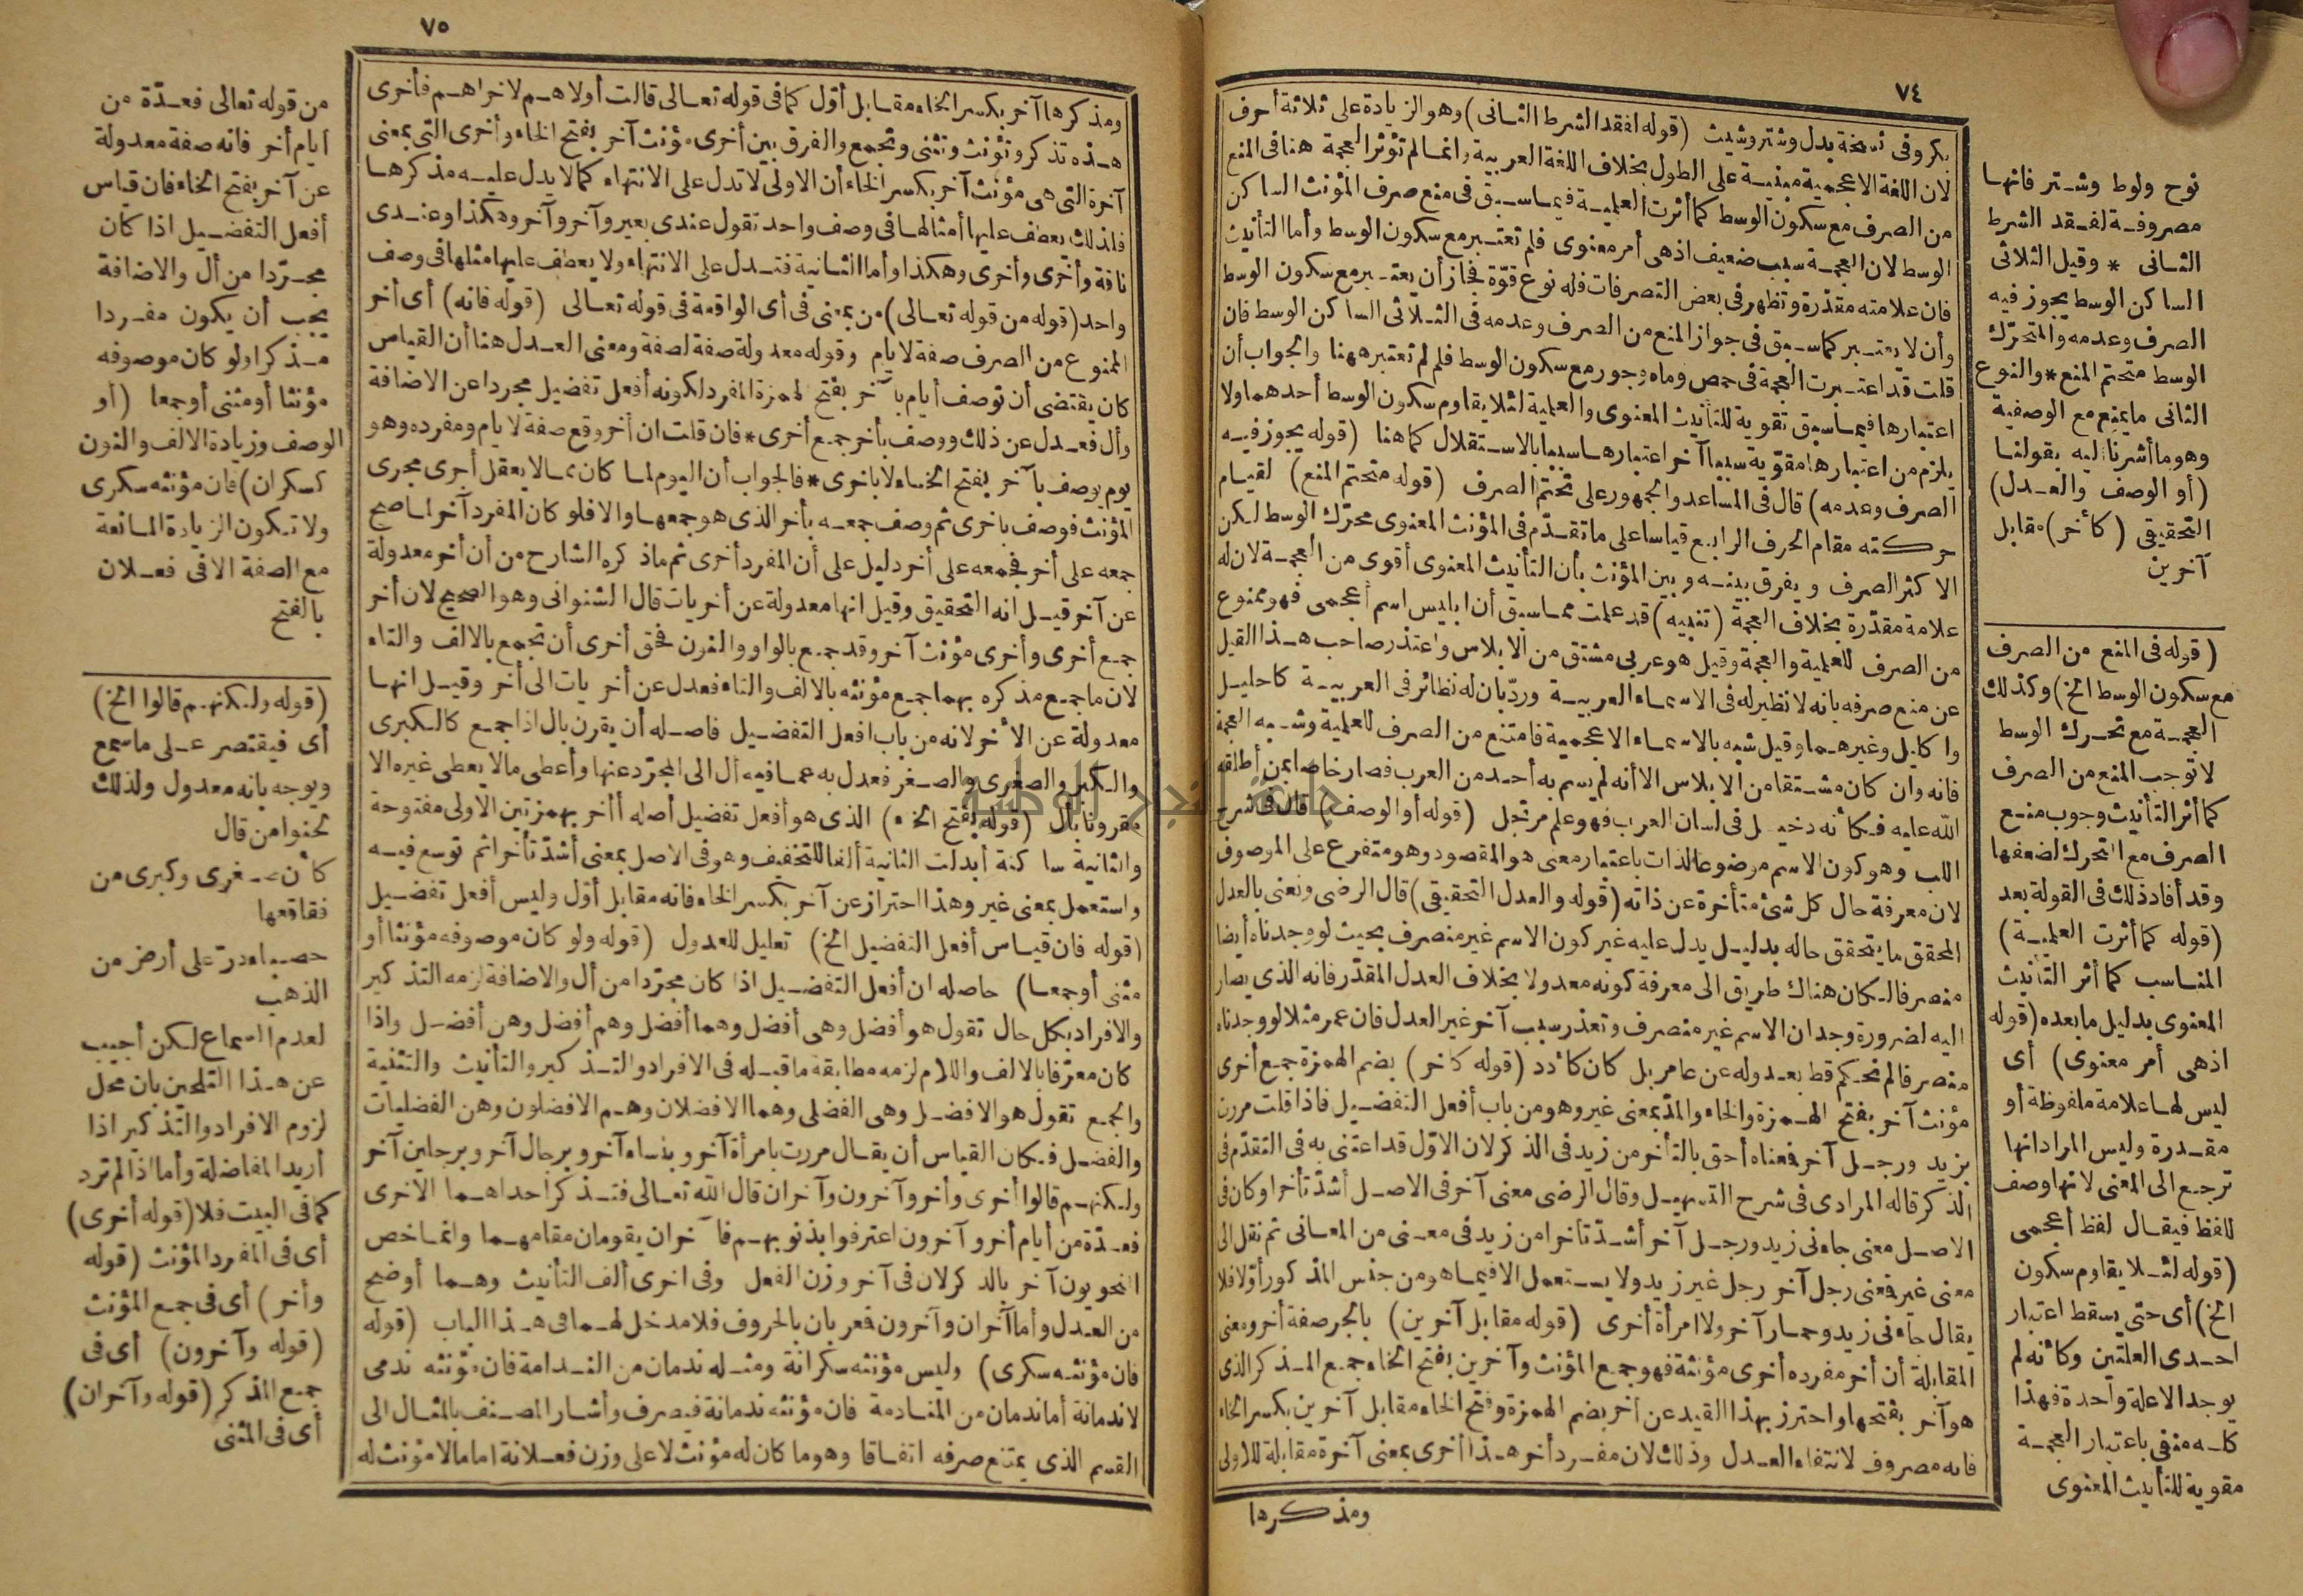 ٧٤
بكر وفى نسخة بدل وشتر وشيث (قوله لفقد الشرط الثانى) وهو الزيادة على ثلاثة أحرف
لان اللغة الاعجمية مبنية على الطول بخلاف اللغة العربية وانما لم تؤثر العجمة هنا فى المنع
من الصرف مع سكون الوسط كما أثرت العلمية فيما سبق فى منع صرف المؤنث الساكن
الوسط لان العجمة سبب ضعيف اذهى أمر معنوى فلم تعتبر مع سكون الوسط وأما التأنيث
فان علامته مقدّرة وتظهر فى بعض التصرفات فله نوع قوّة فجاز أن يعتبر مع سكون الوسط
وأن لا يعتبر كما سبق فى جواز المنع من الصرف وعدمه فى الثلاثى الساكن الوسط فان
قلت قد اعتبرت العجمة فى حمص وماه وجور مع سكون الوسط فلم لم تعتبر ههنا والجواب أن
اعتبارها فيما سبق تقوية للتأنيث المعنوى والعلمية لئلا يقاوم سكون الوسط أحدهما ولا
يلزم من اعتبارها مقوّية سببا آخر اعتبارها سببا بالاستقلال كما هنا (قوله يجوز فيه
الصرف وعدمه) قال فى المساعد والجمهور على تحتم الصرف (قوله متحتم المنع) لقيام
حركته مقام الحرف الرابع قياسا على ما تقدّم فى المؤنث المعنوى محرّك الوسط لكن
الاكثر الصرف ويفرق بينه وبين المؤنث بأن التأنيث المعنوى أقوى من العجمة لان له
علامة مقدّرة بخلاف العجمة (تنبيه) قد علمت مما سبق أن ابليس اسم أعجمى فهو ممنوع
من الصرف للعلمية والعجمة وقيل هو عربى مشتق من الابلاس واعتذر صاحب هذا القيل
عن منع صرفه بانه لا نظير له فى الاسماء العربية وردّ بان له نظائر فى العربية كاحليل
واكليل وغيرهما وقيل شبه بالاسماء الاعجمية فامتنع من الصرف للعلمية وشبه العجمة
فانه وان كان مشتقا من الابلاس الا أنه لم يسم به أحد من العرب فصار خاصا بمن أطلقه
الله عليه فكأنه دخيل فى لسان العرب فهو علم مرتجل (قوله أو الوصف) قال فى شرح
اللب وهو كون الاسم موضوعا لذات باعتبار معنى هو المقصود وهو متفرع على الموصوف
لان معرفة حال كل شئ متأخرة عن ذاته (قوله والعدل التحقيقى) قال الرضى ونعنى بالعدل
المحقق ما يتحقق حاله بدليل يدل عليه غير كون الاسم غير منصرف بحيث لو وجدناه أيضا
منصرفا لكان هناك طريق الى معرفة كونه معدولا بخلاف العدل المقدّر فانه الذى يصار
اليه لضرورة وجدان الاسم غير منصرف وتعذر سبب آخر غير العدل فان عمر مثلا لو وجدناه
منصرفا لم نحكم قط بعدوله عن عامر بل كان كأدد (قوله كأخر) بضم الهمزة جمع أخرى
مؤنث آخر بفتح الهمزة والخاء والمدّ بمعنى غير وهو من باب أفعل التفضيل فاذا قلت مررت
بزيد ورجل آخر فمعناه أحق بالتأخر من زيد فى الذكر لان الاوّل قد اعتنى به فى التقدّم فى
الذكر قاله المرادى فى شرح التسهيل وقال الرضى معنى آخر فى الاصل أشدّ تأخرا وكان فى
الاصل معنى جاءنى زيد ورجل آخر أشدّ تأخرا من زيد فى معنى من المعانى ثم نقل الى
معنى غير فعنى رجل آخر رجل غير زيد ولا يستعمل الا فيما هو من جنس المذكور أوّلا فلا
يقال جاءنى زيد وحمار آخر ولا امرأة أخرى (قوله مقابل آخرين) بالجر صفة أخر ومعنى
المقابلة أن أخر مفرده أخرى مؤنثة فهو جمع المؤنث وآخرين بفتح الخاء جمع المذكر الذى
هو آخر بفتحها واحترز بهذا القيد عن أخر بضم الهمزة وفتح الخاء مقابل آخرين بكسر الخاء
فانه مصروف لانتفاء العدل وذلك لان مفرد أخر هذا أخرى بمعنى آخرة مقابلة للاولى
ومذكرها
نوح ولوط وشتر فانها
مصروفة لفقد الشرط
الثانى * وقيل الثلاثى
الساكن الوسط يجوز فيه
الصرف وعدمه والمتحرّك
الوسط متحتم المنع * والنوع
الثانى ما يمتنع مع الوصفية
وهو ما أشرنا اليه بقولنا
(أو الوصف والعدل)
التحقيقى (كأخر) مقابل
آخرين
(قوله فى المنع من الصرف
مع سكون الوسط الخ) وكذلك
العجمة مع تحرك الوسط
لا توجب المنع من الصرف
كما أثر التأنيث وجوب منع
الصرف مع التحرك لضعفها
وقد أفاد ذلك فى القولة بعد
(قوله كما أثرت العلمية)
المناسب كما أثر التأنيث
المعنوى بدليل ما بعده (قوله
اذهى أمر معنوى) أى
ليس لها علامة ملفوظة أو
مقدرة وليس المراد انها
ترجع الى المعنى لانها وصف
للفظ فيقال لفظ أعجمى
(قوله لئلا يقاوم سكون
الخ) أى حتى يسقط اعتبار
احدى العلتين وكأنه لم
يوجد الا علة واحدة فهذا
كله منفى باعتبار العجمة
مقوية للتأنيث المعنوى
٧٥
ومذكرها آخر بكسر الخاء مقابل أوّل كما فى قوله تعالى قالت أولاهم لاخراهم فأخرى
هذه تذكر وتؤنث وتثنى وتجمع والفرق بين أخرى مؤنث آخر بفتح الخاء وأخرى التى بمعنى
آخرة التى هى مؤنث آخر بكسر الخاء أن الاولى لا تدل على الانتهاء كما لا يدل عليه مذكرها
فلذلك يعطف عليها أمثالها فى وصف واحد تقول عندى بعير وآخر وآخر وهكذا وعندى
ناقة وأخرى وأخرى وهكذا وأما الثانية فتدل على الانتهاء ولا يعطف عليها مثلها فى وصف
واحد (قوله من قوله تعالى) من بمعنى فى أى الواقعة فى قوله تعالى (قوله فانه) أى أخر
الممنوع من الصرف صفة لايام وقوله معدولة صفة لصفة ومعنى العدل هنا أن القياس
كان يقتضى أن توصف أيام بآخر بفتح الهمزة المفرد لكونه أفعل تفضيل مجردا عن الاضافة
وأل فعدل عن ذلك ووصف بأخر جمع أخرى * فان قلت ان أخر وقع صفة لايام ومفرده وهو
يوم يوصف بآخر بفتح الخاء لا باخرى * فالجواب أن اليوم لما كان مما لا يعقل أجرى مجرى
المؤنث فوصف باخرى ثم وصف جمعه بأخر الذى هو جمعها والا فلو كان المفرد آخر لما صح
جمعه على أخر فجمعه على أخر دليل على أن المفرد أخرى ثم ماذكره الشارح من أن أخر معدولة
عن آخر قيل انه التحقيق وقيل انها معدولة عن أخريات قال الشنوانى وهو الصحيح لان أخر
جمع أخرى وأخرى مؤنث آخر وقد جمع بالواو والنون فحق أخرى أن تجمع بالالف والتاء
لان ما جمع مذكره بهما جمع مؤنثه بالالف والتاء فعدل عن أخريات الى أخر وقيل انها
معدولة عن الأخر لانه من باب افعل التفضيل فاصله أن يقرن بال اذا جمع كالكبرى
والكبر والصغرى والصغر فعدل به عما فيه أل الى المجرّد عنها وأعطى مالا يعطى غيره الا
مقرونا بأل (قوله بفتح الخاء) الذى هو أفعل تفضيل أصله أأخر بهمزتين الاولى مفتوحة
والثانية ساكنة أبدلت الثانية ألفا للتخفيف وهو فى الاصل بمعنى أشدّ تأخرا ثم توسع فيه
واستعمل بمعنى غير وهذا احتراز عن آخر بكسر الخاء فانه مقابل أوّل وليس أفعل تفضيل
(قوله فان قياس أفعل التفضيل الخ) تعليل للعدول (قوله ولو كان موصوفه مؤنثا أو
مثنى أو جمعا) حاصله ان أفعل التفضيل اذا كان مجرّدا من أل والاضافة لزمه التذكير
والافراد بكل حال تقول هو أفضل وهى أفضل وهما أفضل وهم أفضل وهن أفضل واذا
كان معرّفا بالالف واللام لزمه مطابقة ما قبله فى الافراد والتذكير والتأنيث والتثنية
والجمع تقول هو الافضل وهى الفضلى وهما الافضلان وهم الافضلون وهن الفضليات
والفضل فكان القياس أن يقال مررت بامرأة آخر وبنساء آخر وبرجال آخر وبرجلين آخر
ولكنهم قالوا أخرى وأخر وآخرون وآخران قال الله تعالى فتذكر احداهما الاخرى
فعدّة من أيام أخر وآخرون اعترفوا بذنوبهم فآخران يقومان مقامهما وانما خص
النحويون آخر بالذكر لان فى آخر وزن الفعل وفى اخرى ألف التأنيث وهما أوضح
من العدل وأما آخران وآخرون فمعربان بالحروف فلا مدخل لهما فى هذا الباب (قوله
فان مؤنثه سكرى) وليس مؤنثه سكرانة ومثله ندمان من الندامة فان مؤنثه ندمى
لا ندمانة أما ندمان من المنادمة فان مؤنثه ندمانة فيصرف وأشار المصنف بالمثال الى
القسم الذى يمتنع صرفه اتفاقا وهو ما كان له مؤنث لا على وزن فعلانة اما مالا مؤنث له
من قوله تعالى فعدّة من
أيام أخر فانه صفة معدولة
عن آخر بفتح الخاء فان قياس
أفعل التفضيل اذا كان
مجرّدا من أل والاضافة
يجب أن يكون مفردا
مذكرا ولو كان موصوفه
مؤنثا أو مثنى أو جمعا (أو
الوصف وزيادة الالف والنون
كسكران) فان مؤنثه سكرى
ولا تكون الزيادة المانعة
مع الصفة الا فى فعلان
بالفتح
(قوله ولكنهم قالوا الخ)
أى فيقتصر على ما سمع
ويوجه بانه معدول ولذلك
لحنوا من قال
كأن صغرى وكبرى من
فقاقعها
حصباء درّ على أرض من
الذهب
لعدم السماع لكن أجيب
عن هذا التلحين بان محل
لزوم الافراد والتذكير اذا
أريد المفاضلة وأما اذا لم ترد
كما فى البيت فلا (قوله أخرى)
أى فى المفرد المؤنث (قوله
وأخر) أى فى جمع المؤنث
(قوله وآخرون) أى فى
جمع المذكر (قوله وآخران)
أى فى المثنى